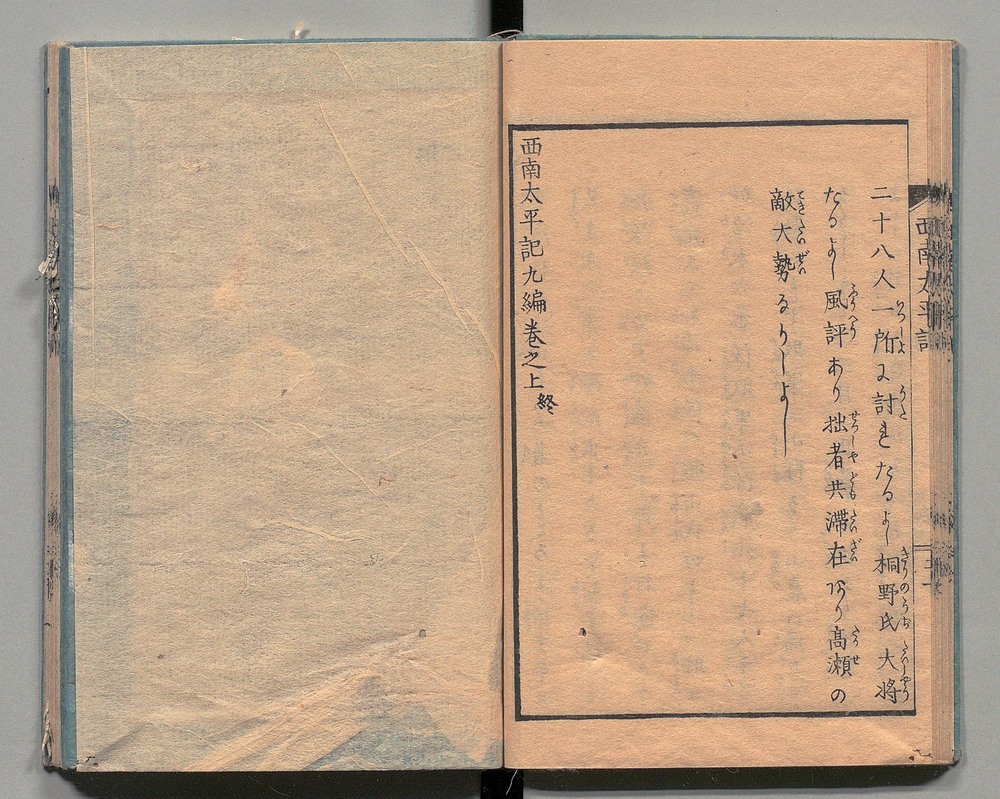 二十八人一所に討れたるよし桐野氏大将
たるよし風評あり拙者共滞在より高瀬の
敵大勢なりしよし
西南太平記九編巻之上終
西南太平記